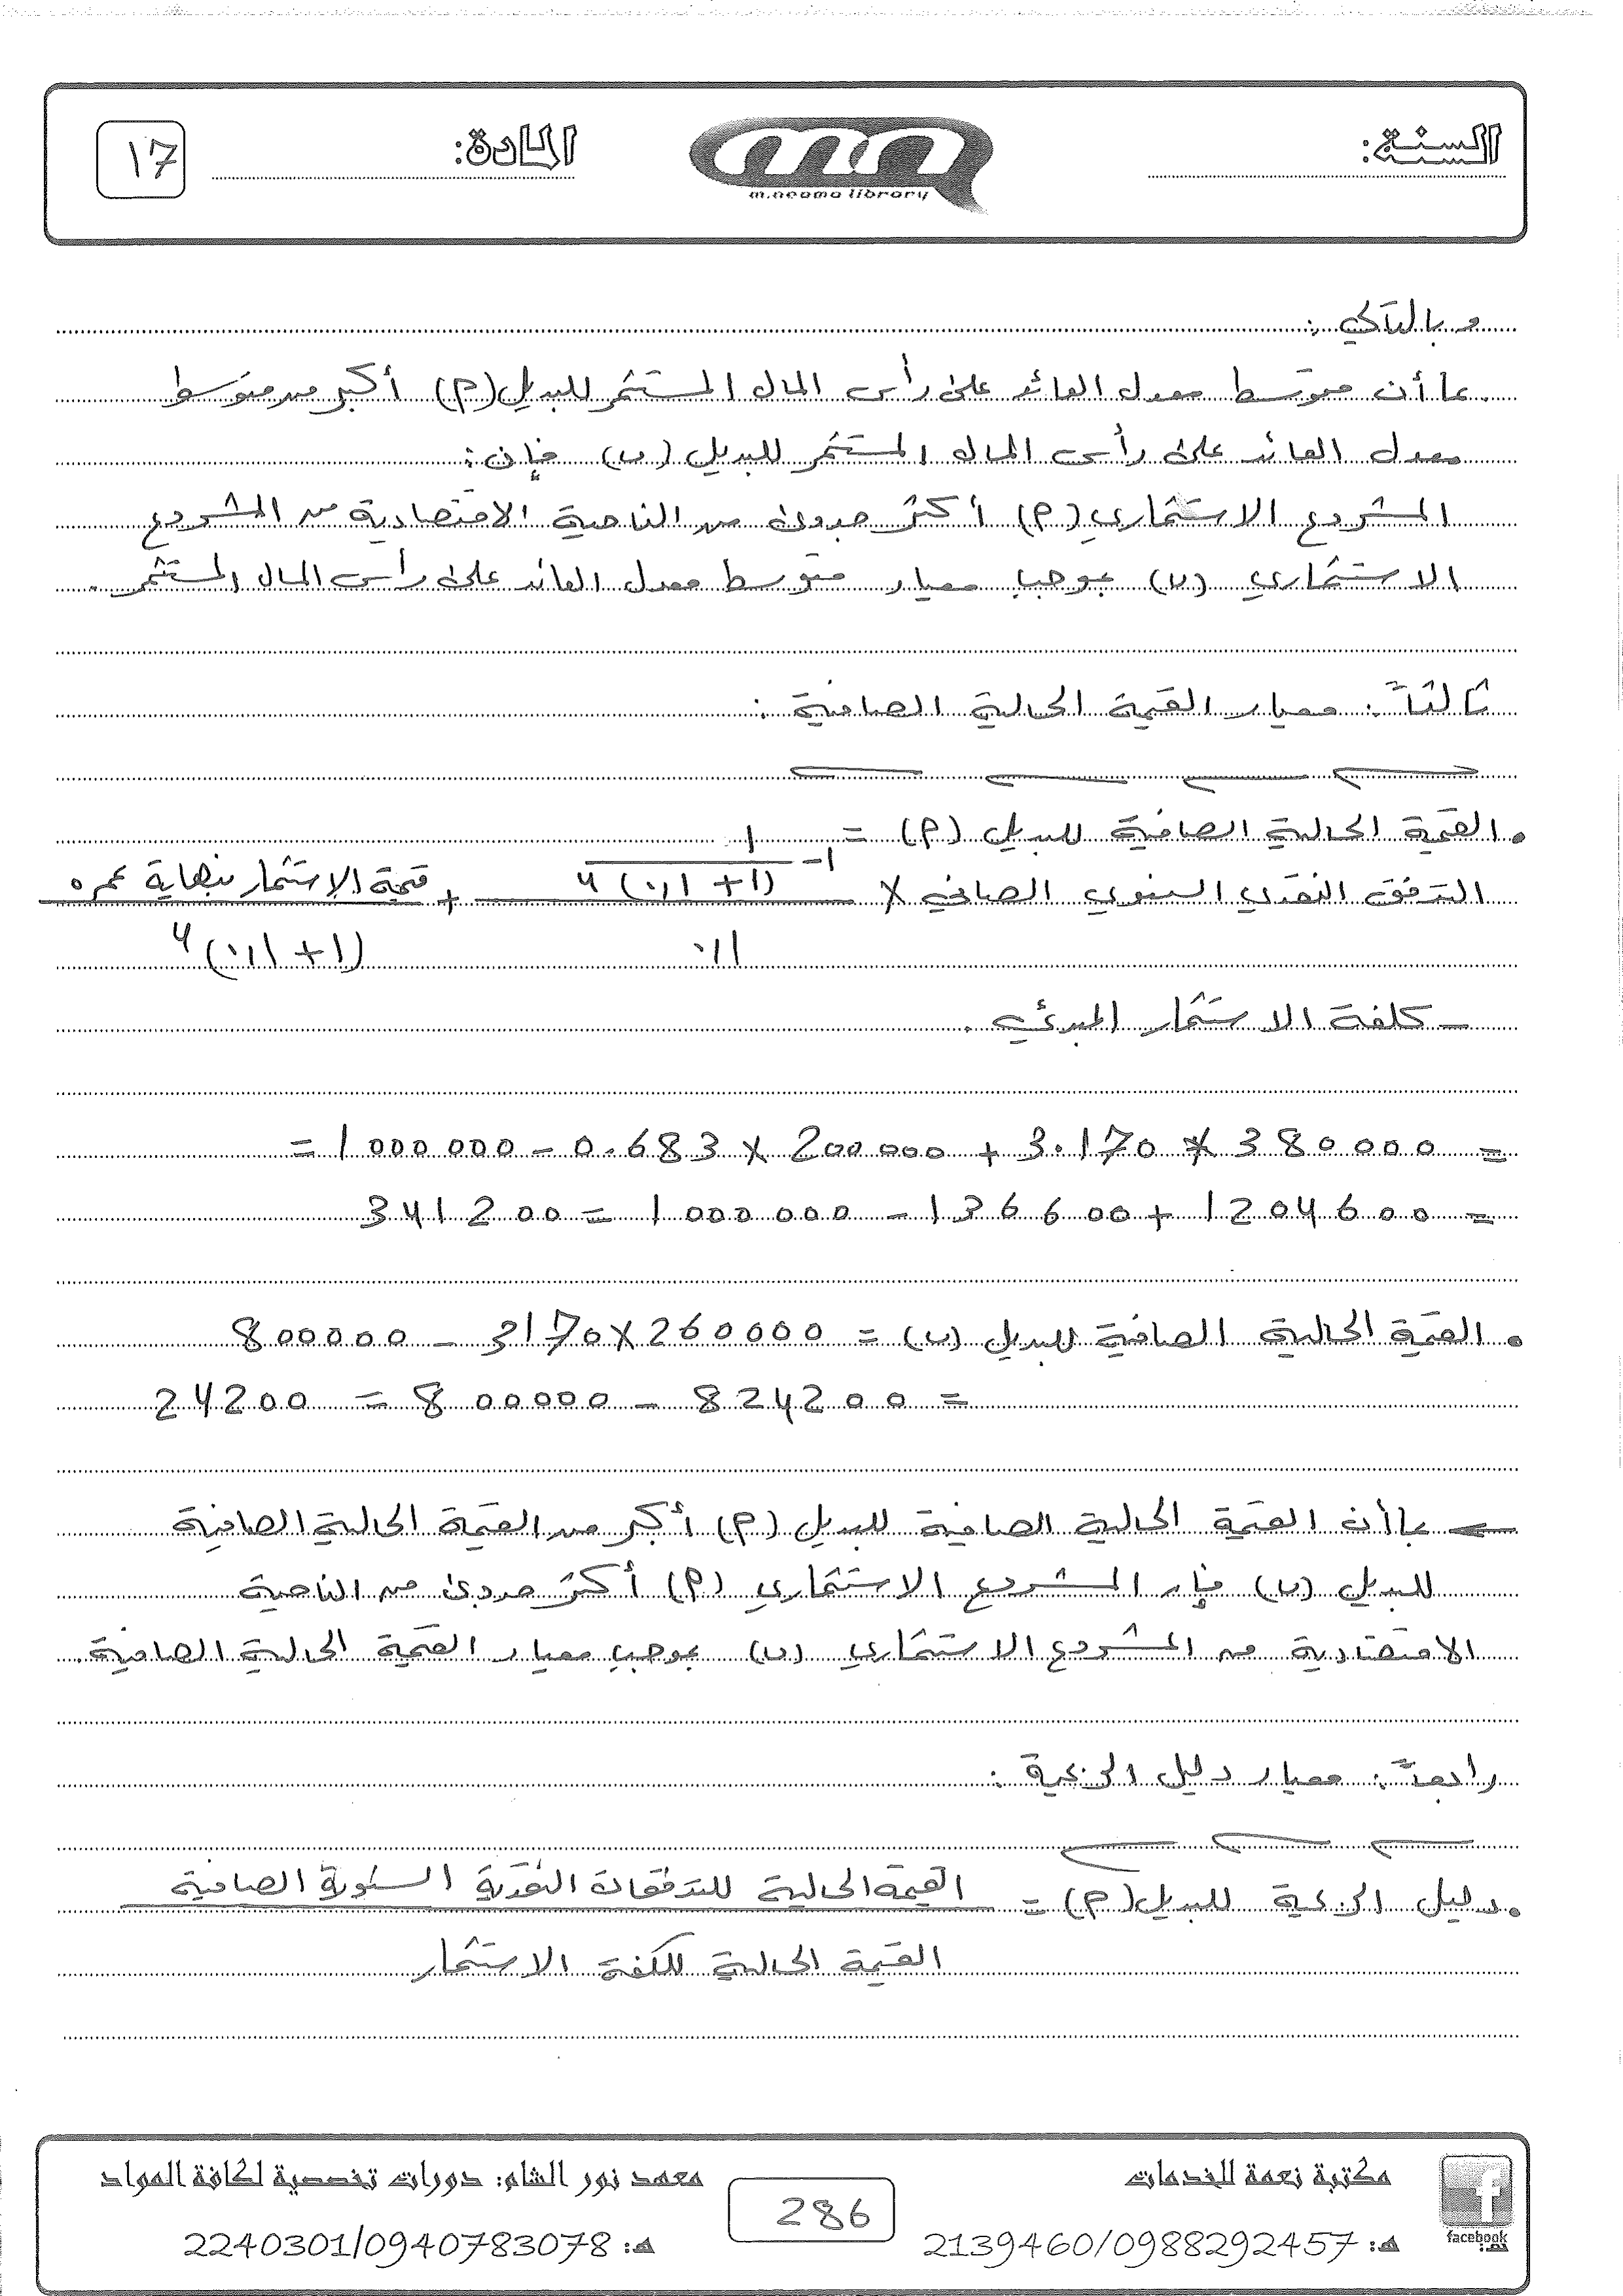 السنة:
m.neama library
المادة:
17
وبالتالي:
بما أن متوسط معدل العائد على رأس المال المستثمر للبديل (P) أكبر من متوسط
معدل العائد على رأس المال المستثمر للبديل (ب) فإن:
المشروع الاستثماري (P) أكثر جدوى من الناحية الاقتصادية من المشروع
الاستثماري (ب) بموجب معيار متوسط معدل العائد على رأس المال المستثمر.
ثالثاً: معيار القيمة الحالية الصافية:
• القيمة الحالية الصافية للبديل (P) =
التدفق النقدي السنوي الصافي × (1 - 1/(1 + 0,1)4)/0,1 + قيمة الاستثمار بنهاية عمره/(1 + 0,1)4
- كلفة الاستثمار المبدئي.
= 380000 * 3.170 + 200000 × 0.683 - 1000000 =
= 1204600 + 136600 - 1000000 = 341200
• القيمة الحالية الصافية للبديل (ب) = 260000 × 3170 - 800000
= 824200 - 800000 = 24200
← بما أن القيمة الحالية الصافية للبديل (P) أكبر من القيمة الحالية الصافية
للبديل (ب) فإن المشروع الاستثماري (P) أكثر جدوى من الناحية
الاقتصادية من المشروع الاستثماري (ب) بموجب معيار القيمة الحالية الصافية.
رابعاً: معيار دليل الربحية:
• دليل الربحية للبديل (P) = القيمة الحالية للتدفقات النقدية السنوية الصافية
القيمة الحالية لكلفة الاستثمار
مكتبة نعمة للخدمات
هـ: 2139460/0988292457
facebook
286
معهد نور الشام: دورات تخصصية لكافة المواد
هـ: 2240301/0940783078